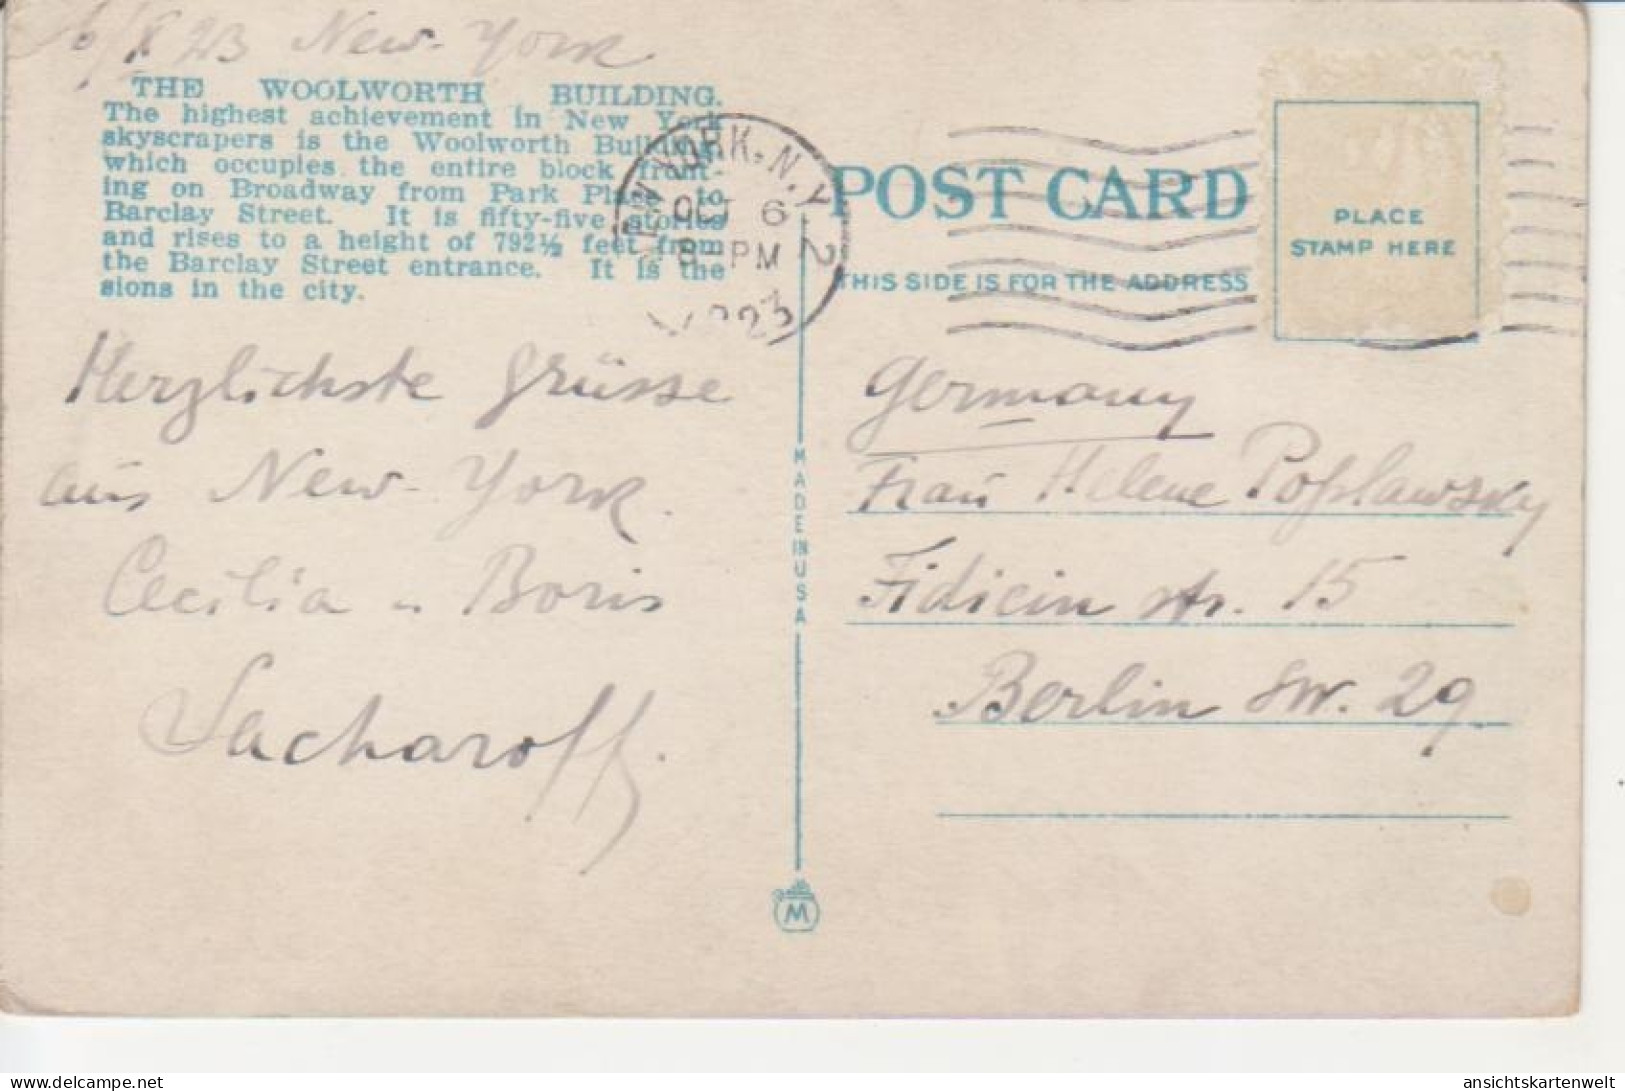 6/X 23 New-York
THE WOOLWORTH BUILDING.
The highest achievement in New York
skyscrapers is the Woolworth Building
which occupies the entire block front-
ing on Broadway from Park Place to
Barclay Street. It is fifty-five stories
and rises to a height of 792½ feet from
the Barclay Street entrance. It is the
sions in the city.
NEW YORK, N.Y. 2
OCT 6
8-PM
1923
Herzlichste Grüsse
aus New-York.
Cecilia u Boris
Sacharoff.
MADE IN USA
M
POST CARD
THIS SIDE IS FOR THE ADDRESS
PLACE
STAMP HERE
Germany
Frau Helene Poplawsky
Fidicin str. 15
Berlin SW. 29
ansichtskartenwelt
© www.delcampe.net